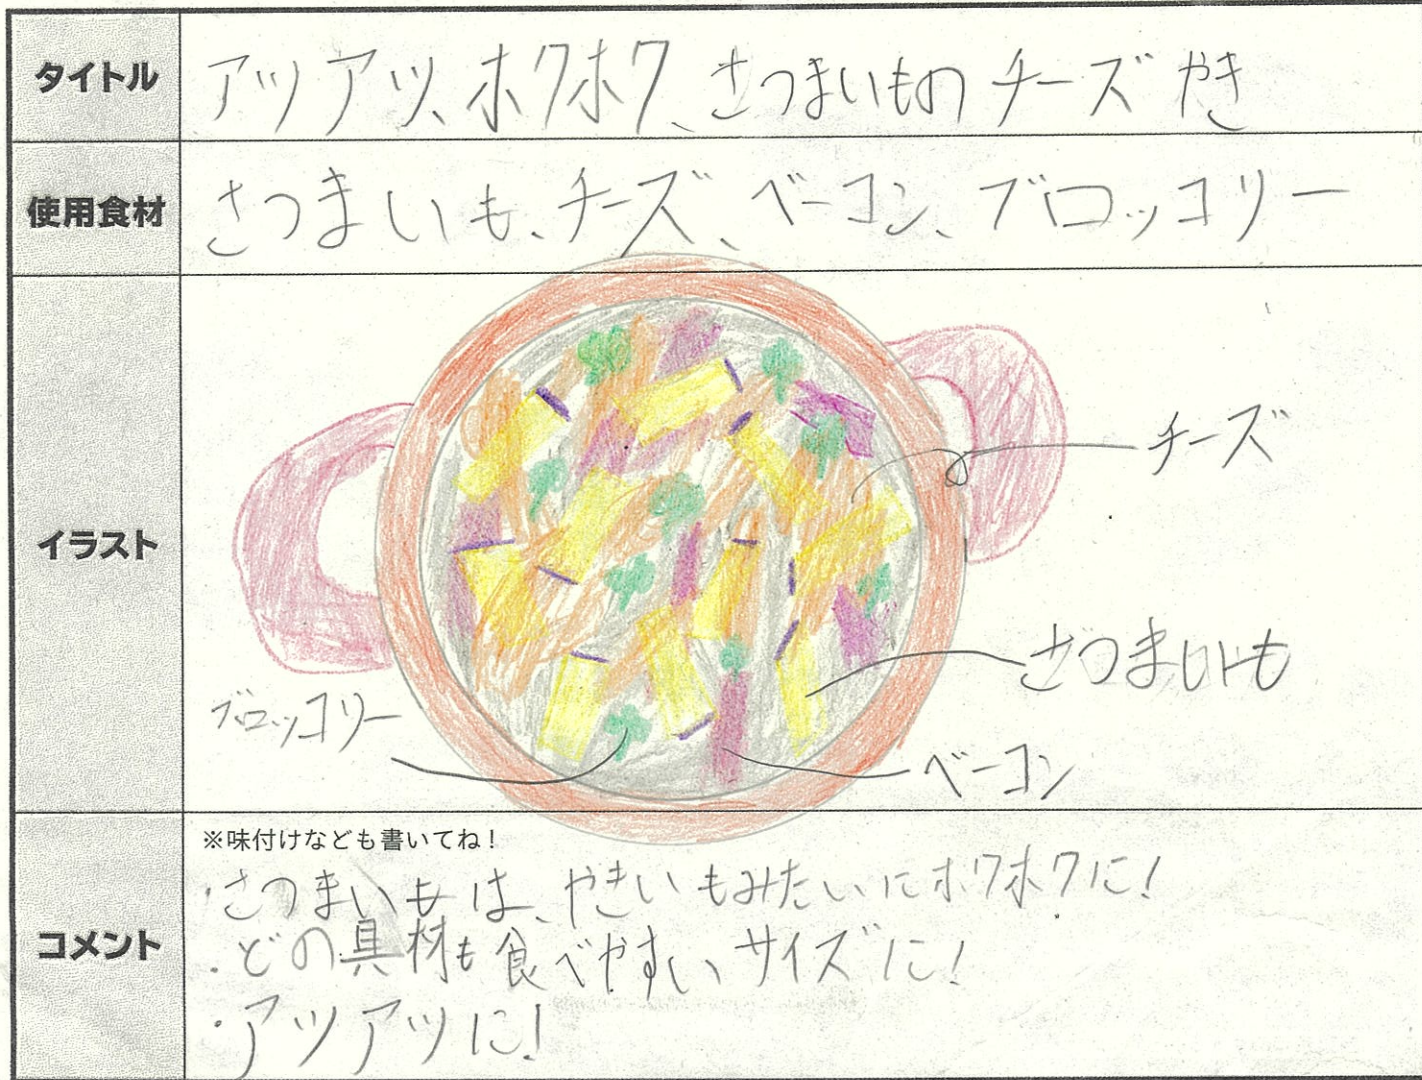 タイトル
アツアツ、ホクホク、さつまいものチーズやき
使用食材
さつまいも、チーズ、ベーコン、ブロッコリー
イラスト
チーズ
さつまいも
ブロッコリー
ベーコン
コメント
※味付けなども書いてね！
・さつまいもは、やきいもみたいにホクホクに！
・どの具材も食べやすいサイズに！
・アツアツに！